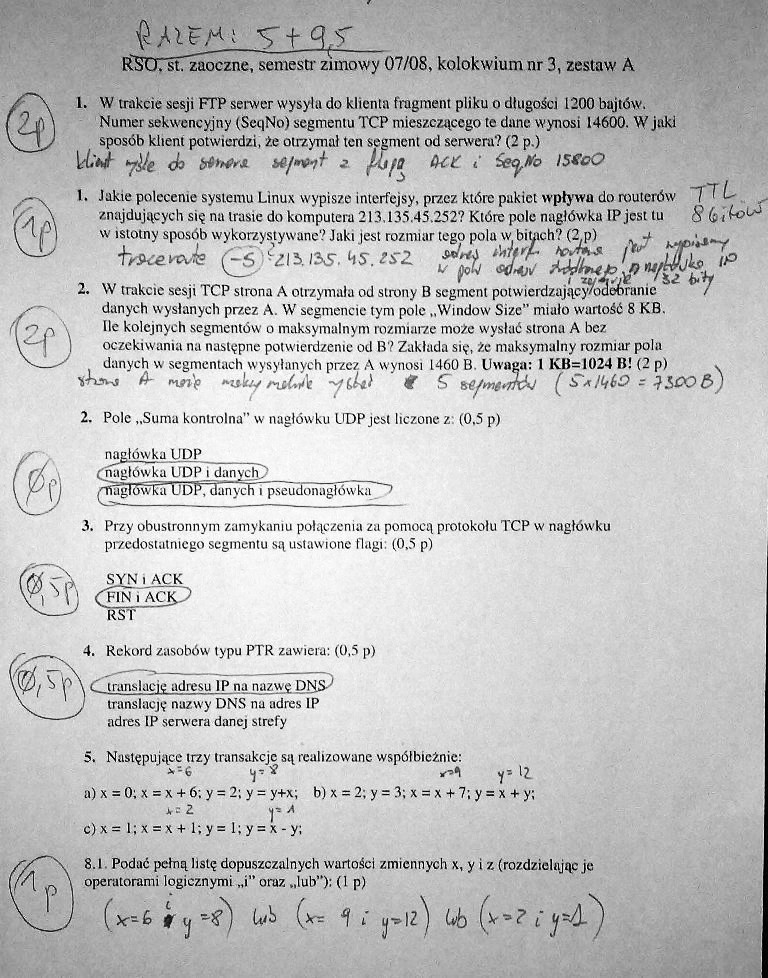 RAZEM: 5 + 9,5
RSO, st. zaoczne, semestr zimowy 07/08, kolokwium nr 3, zestaw A
2p
1. W trakcie sesji FTP serwer wysyła do klienta fragment pliku o długości 1200 bajtów.
Numer sekwencyjny (SeqNo) segmentu TCP mieszczącego te dane wynosi 14600. W jaki
sposób klient potwierdzi, że otrzymał ten segment od serwera? (2 p.)
klient wyśle do serwera segment z flagą ACK i SeqNo 15800
1p
1. Jakie polecenie systemu Linux wypisze interfejsy, przez które pakiet wpływa do routerów
znajdujących się na trasie do komputera 213.135.45.252? Które pole nagłówka IP jest tu
w istotny sposób wykorzystywane? Jaki jest rozmiar tego pola w bitach? (2 p)
TTL
8 bitów
traceroute -s 213.135.45.252 adres interf. routera jest wypisany
w polu adresu źródłowego nagłówka IP
i zajmuje 32 bity
2p
2. W trakcie sesji TCP strona A otrzymała od strony B segment potwierdzający odebranie
danych wysłanych przez A. W segmencie tym pole „Window Size” miało wartość 8 KB.
Ile kolejnych segmentów o maksymalnym rozmiarze może wysłać strona A bez
oczekiwania na następne potwierdzenie od B? Zakłada się, że maksymalny rozmiar pola
danych w segmentach wysyłanych przez A wynosi 1460 B. Uwaga: 1 KB=1024 B! (2 p)
strona A może maksymalnie wysłać 5 segmentów (5x1460 = 7300 B)
2. Pole „Suma kontrolna” w nagłówku UDP jest liczone z: (0,5 p)
0p
nagłówka UDP
nagłówka UDP i danych
nagłówka UDP, danych i pseudonagłówka
3. Przy obustronnym zamykaniu połączenia za pomocą protokołu TCP w nagłówku
przedostatniego segmentu są ustawione flagi: (0,5 p)
0,5p
SYN i ACK
FIN i ACK
RST
4. Rekord zasobów typu PTR zawiera: (0,5 p)
0,5p
translację adresu IP na nazwę DNS
translację nazwy DNS na adres IP
adres IP serwera danej strefy
5. Następujące trzy transakcje są realizowane współbieżnie:
x=6 y=8 x=9 y=12
a) x = 0; x = x + 6; y = 2; y = y+x; b) x = 2; y = 3; x = x + 7; y = x + y;
x=2 y=1
c) x = 1; x = x + 1; y = 1; y = x - y;
1p
8.1. Podać pełną listę dopuszczalnych wartości zmiennych x, y i z (rozdzielając je
operatorami logicznymi „i” oraz „lub”): (1 p)
(x=6 i y=8) lub (x= 9 i y=12) lub (x=2 i y=1)